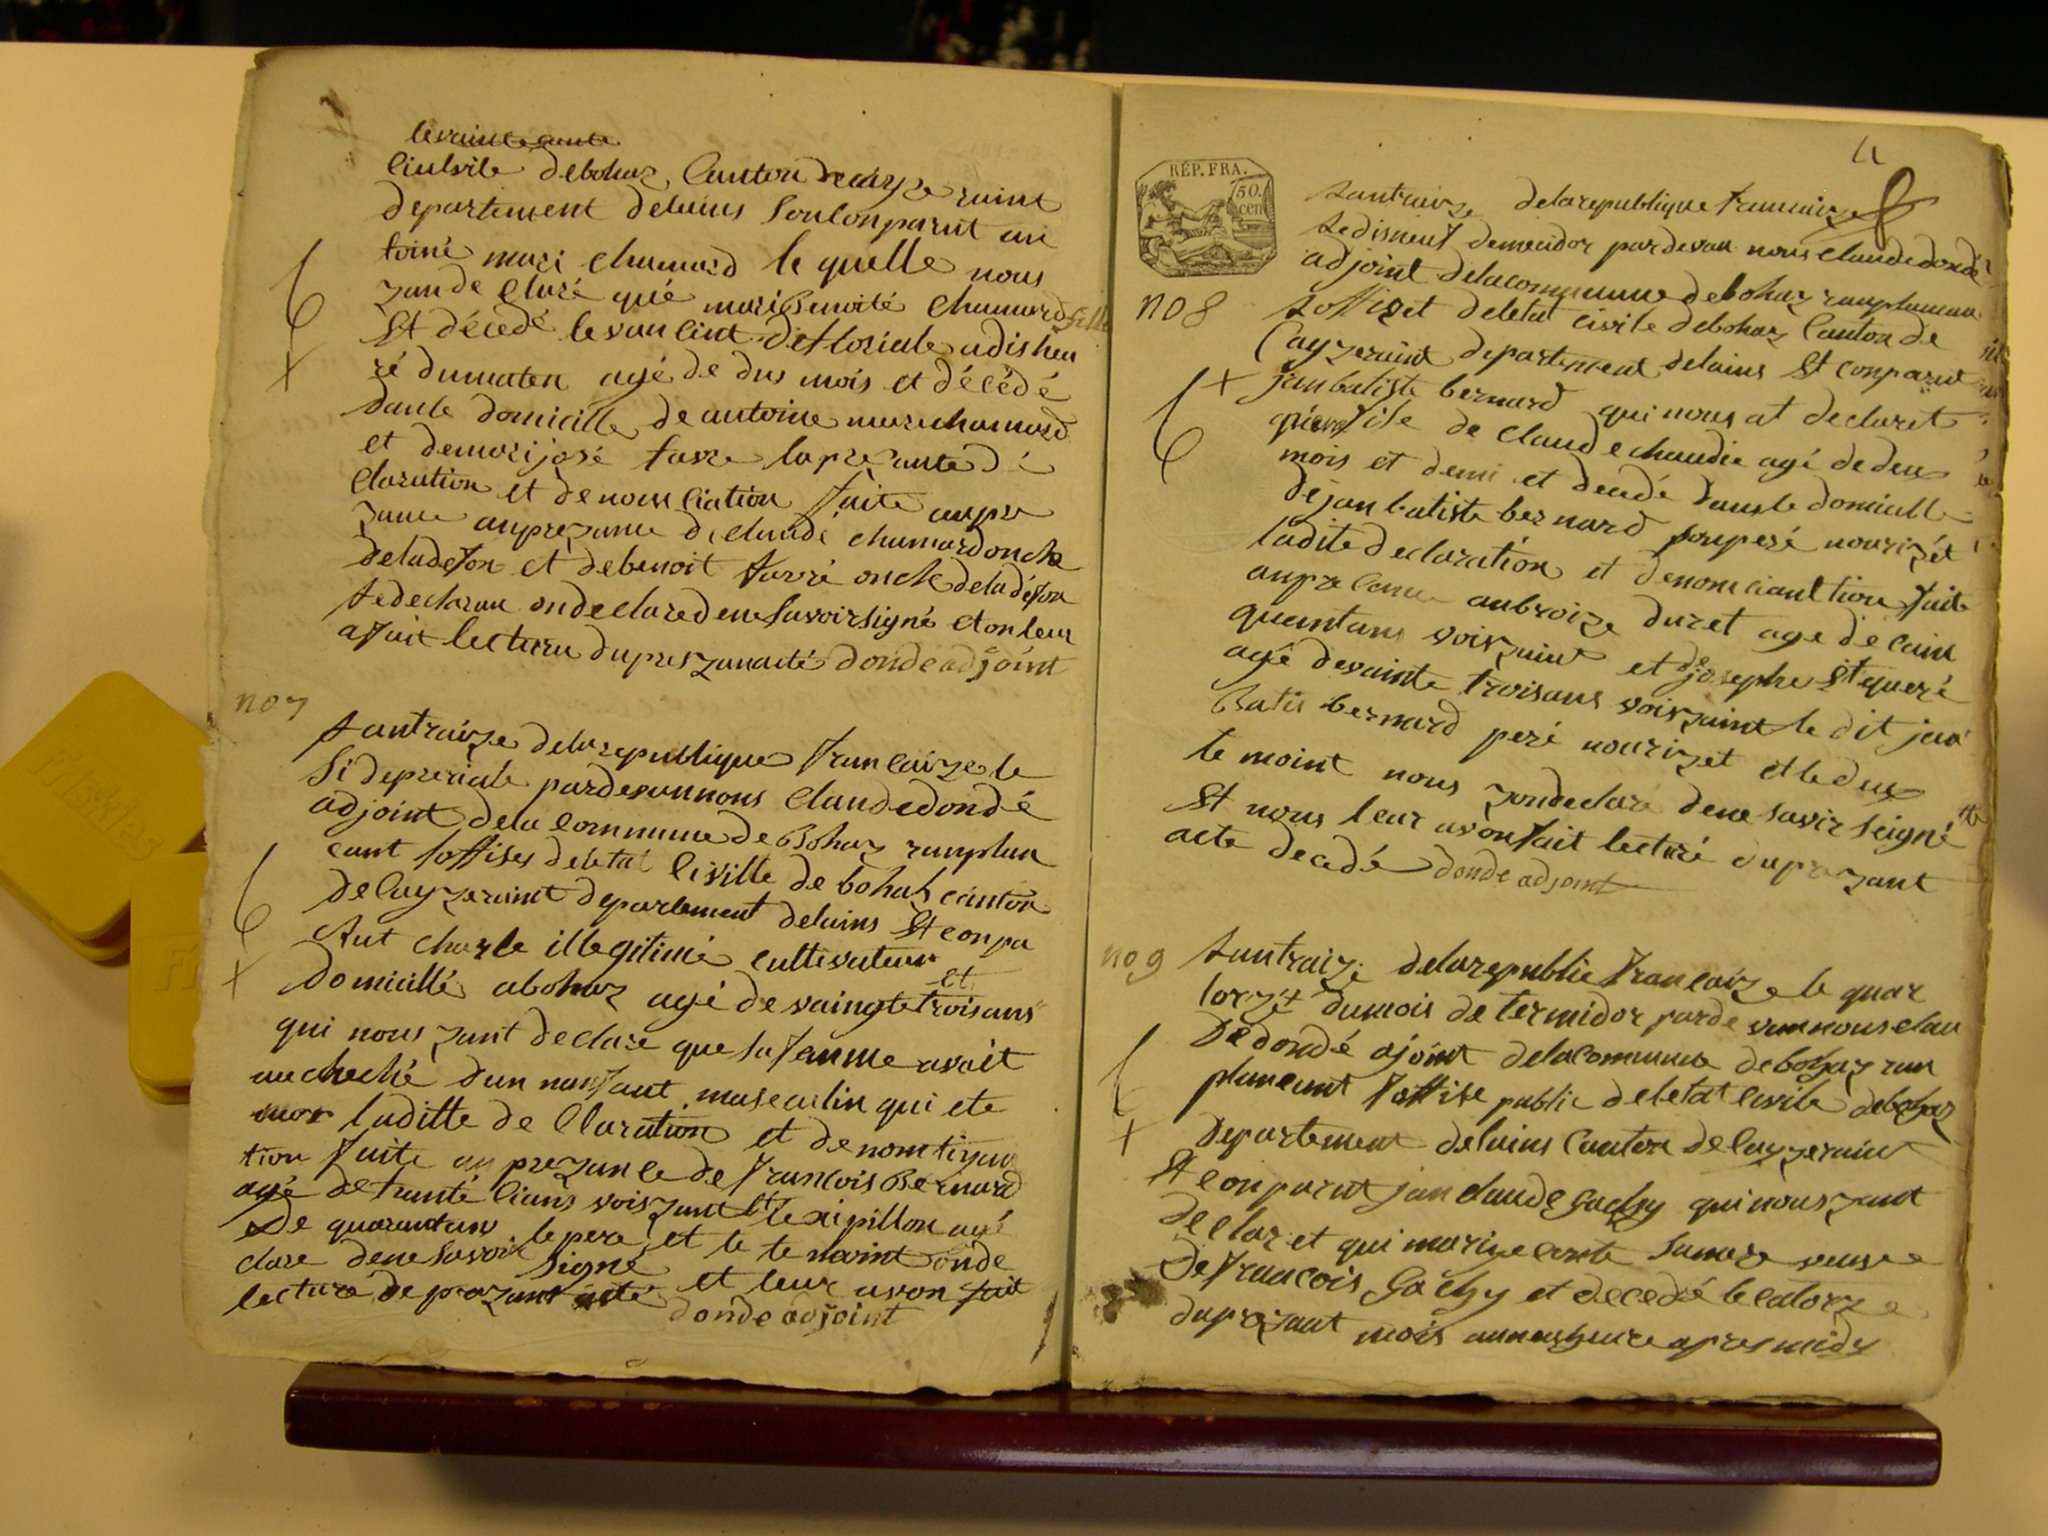 civlvile debohaz Canton decayzeraint
departement delains Sonconparut an
toine mari chamard le quelle nous
zande claré qué mari Benoité chamard fille
St décedé levancint deffloriale a dis heu
ré dumaten agé de dus mois et décédé
dansle domicille de antoine mari chamard
et demarijosé favre laprezanté dé
claration et denonciation faite aupre
zance anprezance de claudé chamard oncle
deladefon et debenoit favré oncle deladéfon
ledeclaran ondeclare dene Savoir signé et on leur
a fait lecture duprezanacté dondé adjoint
no 7
Lantraize delarepublique francaize le
Si deprerial pardevannous Claudedondé
adjoint dela commune de Bohaz ranplan
cant loffises deletat civille de bohas canton
decayzeraint departement delains St conpa
rut charle illegitimé cultivateur
domicillé abohaz agé de vaingt et troisans
qui nous zant declaré que sa fanme avait
aucouché dun nanfant masculin qui ete
mor laditte de claration et denontiya
tion faite an prezance de francois Bernard
agé detranté cians voiszant et texipillon agé
de quarantans le pere et le temoint onde
clare dene savoir Signé et leur avon fait
lecture de prezant acte
dondé adjoint
4
RÉP. FRA.
50. cen
Lantraize delarepublique francaize
ledisneuf demecidor pardevan nous claudedondé
adjoint delacommune debohaz ranplancan
no 8
loffizet deletat civile debohaz Canton de
Cayzeraint departement delains St conparut
janbatiste bernard qui nous at declaret
fils de claude chaudie agé dedeu
mois et demi et decedé dansle domicille
dejanbatiste bernard sonperé nourizét
ladite declaration et denonciantion faite
anprecence anbroize duret age de cain
quantans voiszaint et de josephe St queré
agé devainte troisans voiszaint le dit jan
Batis bernard peré nourizet et ledeu
te moint nous zondeclaré dene savir seigné
St nous leur avonfait lecturé duprezant
acte decedé dondé adjoint
no 9
Lantraize delarepublic francaize le quar
torzet dumois de termidor pardevannous clau
dedondé ajoint delacommune debohaz ran
plancant loffise public deletat civile debohaz
departement delains Canton decayzeraint
St conparut jan claude gachy qui nous zant
declaret qui marizeconte Samere veuve
defrancois Gachy et decedé le catorze
duprezant mois aunneuzheure apres midy